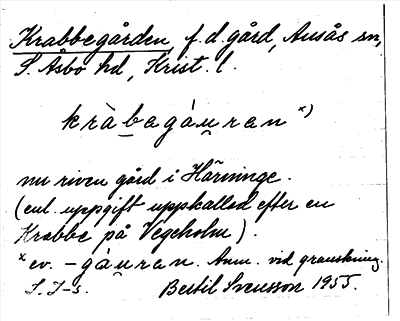 Krabbegården, f.d. gård, Ausås sn,
S. Åsbo hd, Krist. l.
kràbagá u̯ran x)
nu riven gård i Härninge.
(enl. uppgift uppkallad efter en
Krabbe på Vegeholm).
x ev. -gáu̯ran. Anm. vid granskning.
S. I-s. Bertil Svensson 1955.